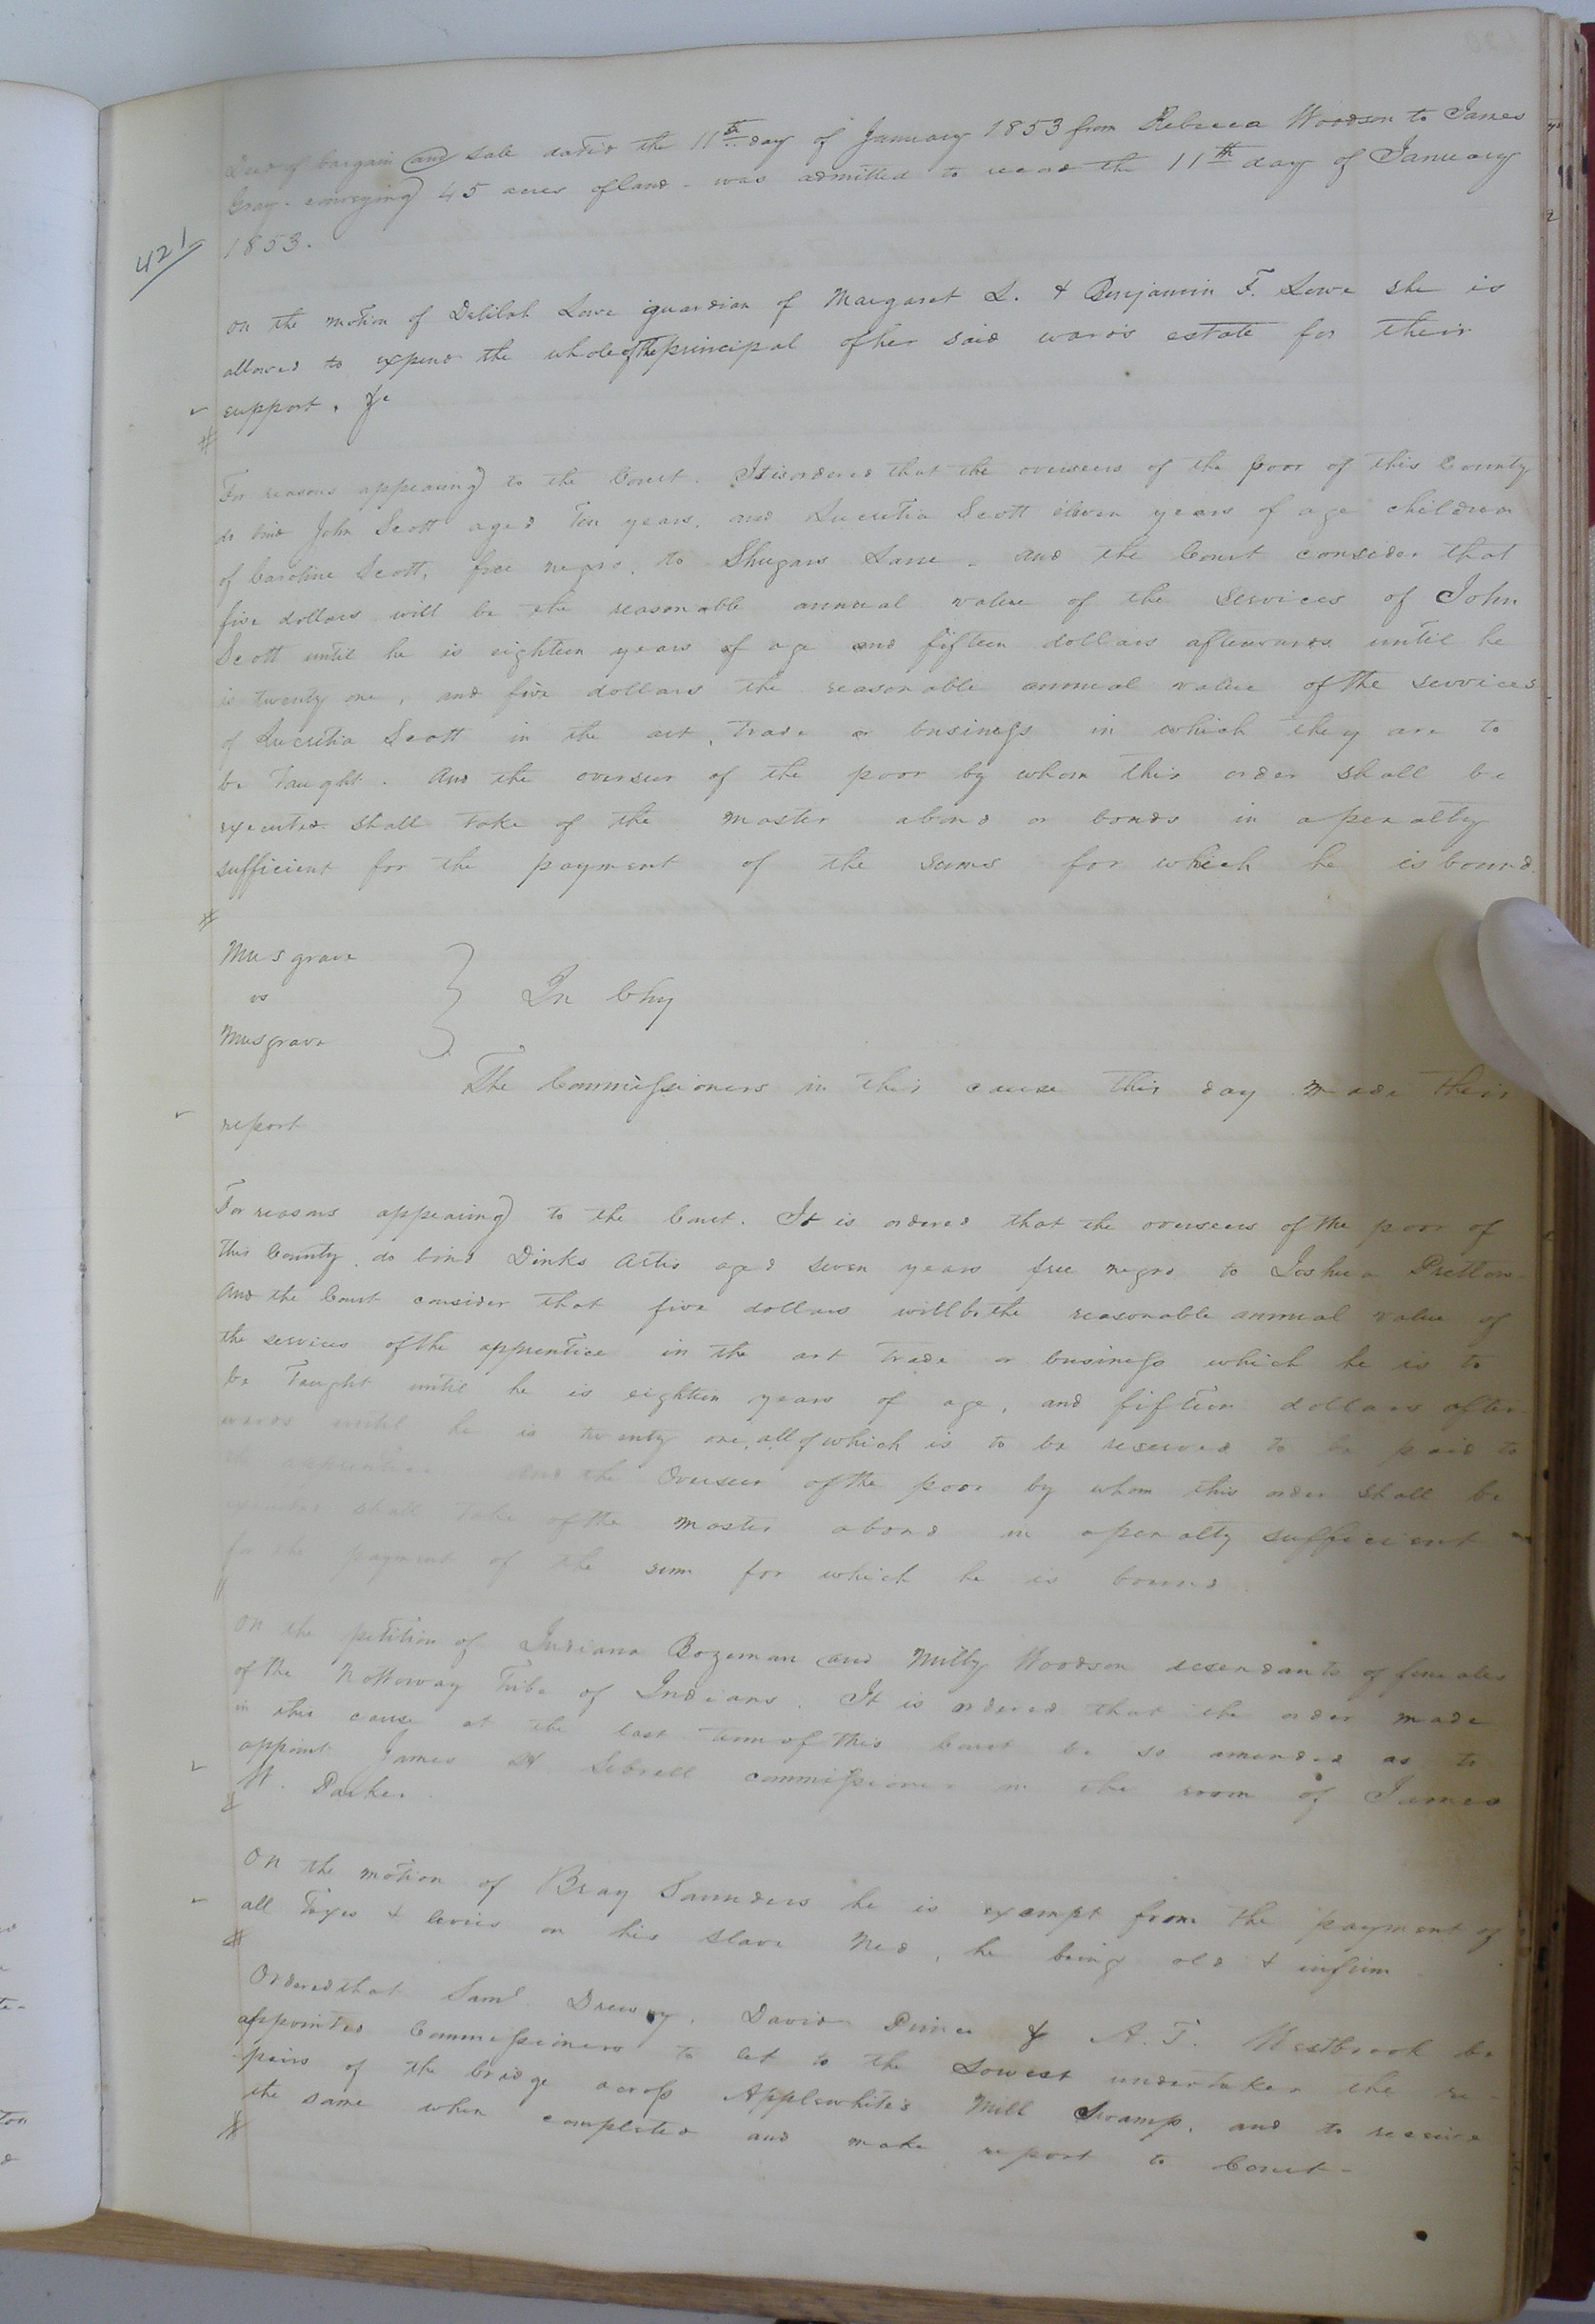 Deed of bargain and sale dated the 11th day of January 1853 from Rebecca Woodson to James
Gray. conveying 45 acres of land - was admitted to record the 11th day of January
1853.
421
On the motion of Delilah Lowe guardian of Margaret L. & Benjamin F. Lowe she is
allowed to expend the whole of the principal of her said wards estate for their
support. &c
For reasons appearing to the Court. It is ordered that the overseers of the poor of this County
do bind John Scott aged Ten years. and Lucretia Scott eleven years of age children
of Caroline Scott, free negro, to Shugars Lane - and the Court consider that
five dollars will be the reasonable annual value of the services of John
Scott until he is eighteen years of age and fifteen dollars afterwards until he
is twenty one, and five dollars the reasonable annual value of the services
of Lucretia Scott in the art, trade or business in which they are to
be Taught. And the overseer of the poor by whom this order shall be
executed shall take of the master a bond or bonds in a penalty
sufficient for the payment of the sums for which he is bound.
Musgrave
vs
Musgrave
In Chy
The Commissioners in this cause this day made their
report
For reasons appearing to the Court. It is ordered that the overseers of the poor of
this County do bind Dinks Artis aged seven years free negro to Joshua Pretlow
And the Court consider that five dollars will be the reasonable annual value of
the services of the apprentice in the art trade or business which he is to
be Taught until he is eighteen years of age, and fifteen dollars after
wards until he is twenty one, all of which is to be reserved to be paid to
apprentice. And the Overseer of the poor by whom this order shall be
executed shall take of the master a bond in a penalty sufficient
for the payment of the sum for which he is bound.
On the petition of Indiana Bozeman and Milly Woodson descendants of females
of the Nottoway Tribe of Indians. It is ordered that the order made
in this cause at the last term of this Court be so amended as to
appoint James Sebrell commissioner in the room of James
W. Parker.
On the motion of Bray Saunders he is exempt from the payment of
all Taxes & levies on his slave Ned, he being old & infirm
Ordered that Saml. Drewry, David Prince & A. T. Westbrook be
appointed Commissioners to let to the Lowest undertaker the re-
pairs of the bridge across Applewhite's Mill Swamp, and to receive
the same when completed and make report to Court -